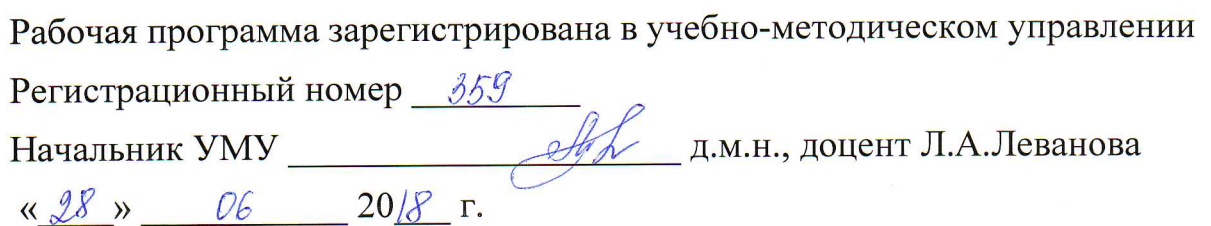 Рабочая программа зарегистрирована в учебно-методическом управлении
Регистрационный номер 359
Начальник УМУ д.м.н., доцент Л.А.Леванова
«28» 06 2018 г.